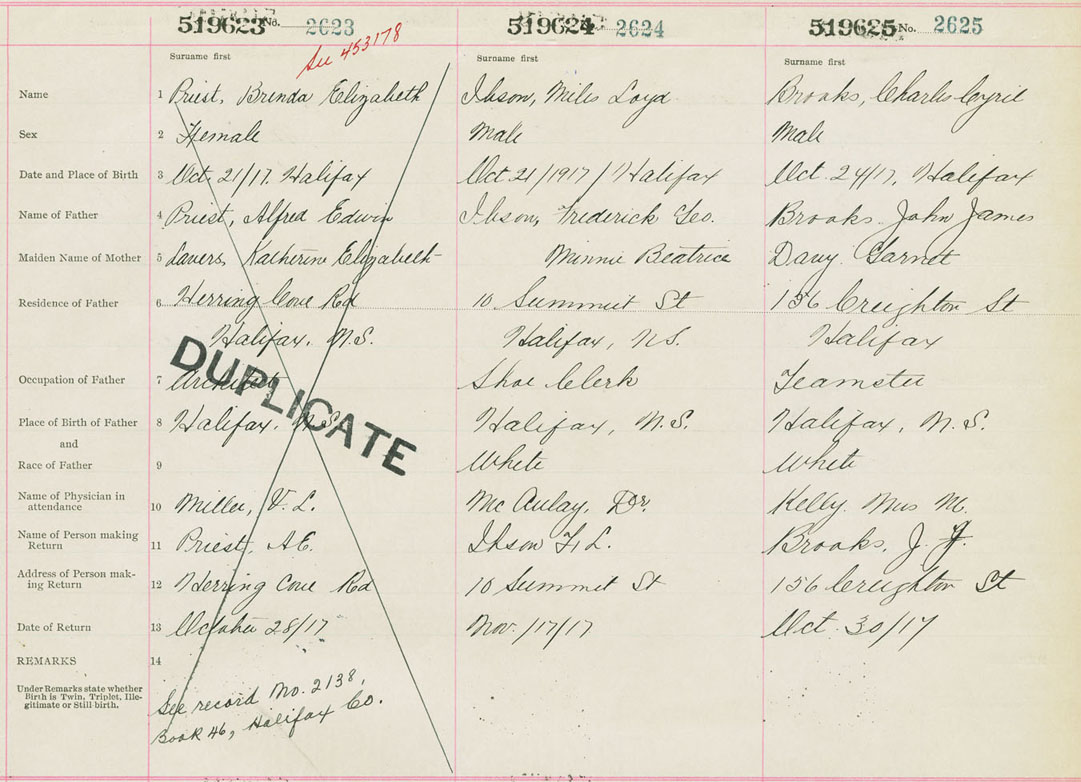 519623 No. 2623 519624 2624 519625 No. 2625
See 453178
Surname first Surname first Surname first
Name 1 Priest, Brenda Elizabeth Ibson, Miles Loyd Brooks, Charles Cyril
Sex 2 Female Male Male
Date and Place of Birth 3 Oct. 21/17. Halifax Oct 21/1917/Halifax Oct. 24/17, Halifax
Name of Father 4 Priest, Alfred Edwin Ibson, Frederick Geo. Brooks. John James
Maiden Name of Mother 5 Lavers, Katherine Elizabeth Minnie Beatrice Davy. Garnet
Residence of Father 6 Herring Cove Rd 10 Summit St 156 Creighton St
Halifax, N.S. Halifax, N.S. Halifax
Occupation of Father 7 Architect Shoe Clerk Teamster
DUPLICATE
Place of Birth of Father 8 Halifax. N.S. Halifax, N.S. Halifax, N.S.
and
Race of Father 9 White White
Name of Physician in
attendance 10 Miller, V. L. McAulay, Dr. Kelly. Mrs M.
Name of Person making
Return 11 Priest, A.E. Ibson F. L. Brooks, J. J.
Address of Person mak-
ing Return 12 Herring Cove Rd 10 Summit St 156 Creighton St
Date of Return 13 October 28/17 Nov. /17/17 Oct. 30/17
REMARKS 14
Under Remarks state whether
Birth is Twin, Triplet, Ille-
gitimate or Still birth.
See record No. 2138,
Book 46, Halifax Co.